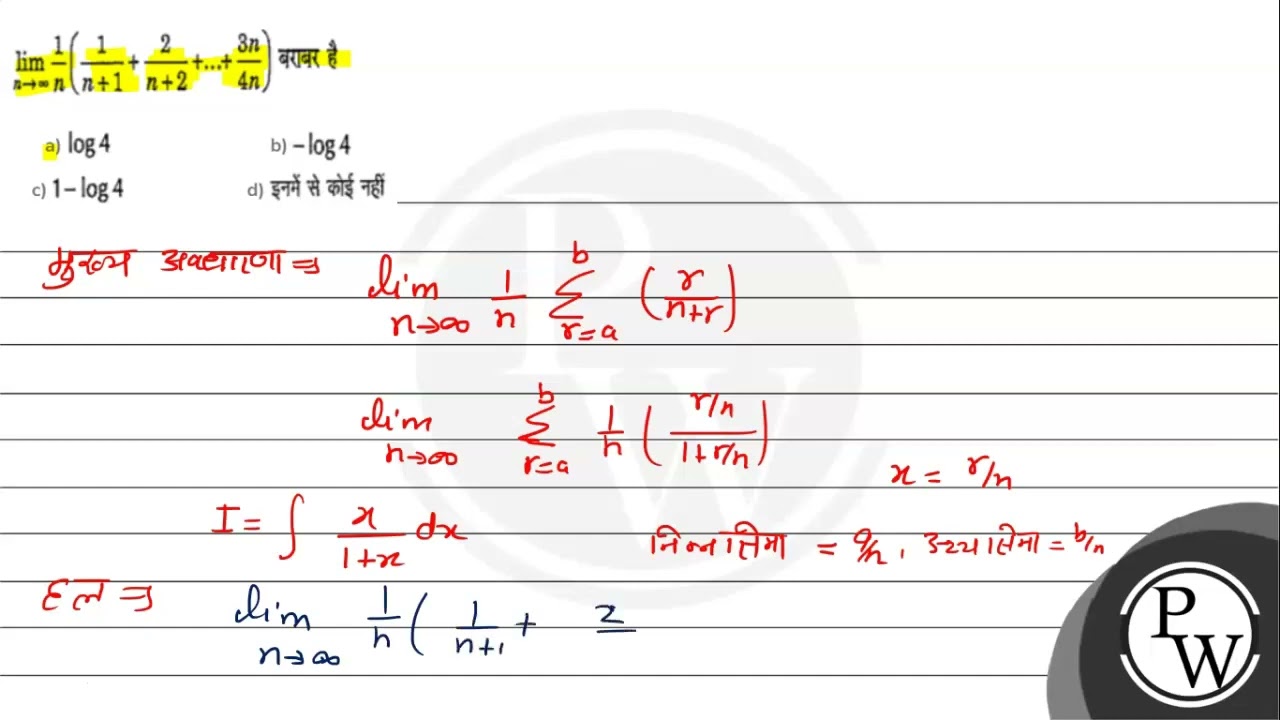 lim n→∞ 1/n (1/(n+1) + 2/(n+2) +...+ 3n/4n) बराबर है
a) log 4 b) – log 4
c) 1 – log 4 d) इनमें से कोई नहीं
मुख्य अवधारणा ⇒ lim n→∞ 1/n Σ r=a b (r/(n+r))
lim n→∞ Σ r=a b 1/n ((r/n)/(1+r/n))
x = r/n
I = ∫ x/(1+x) dx निम्न सिमा = a/n, उच्च सिमा = b/n
हल ⇒ lim n→∞ 1/n ( 1/(n+1 + 2
P W